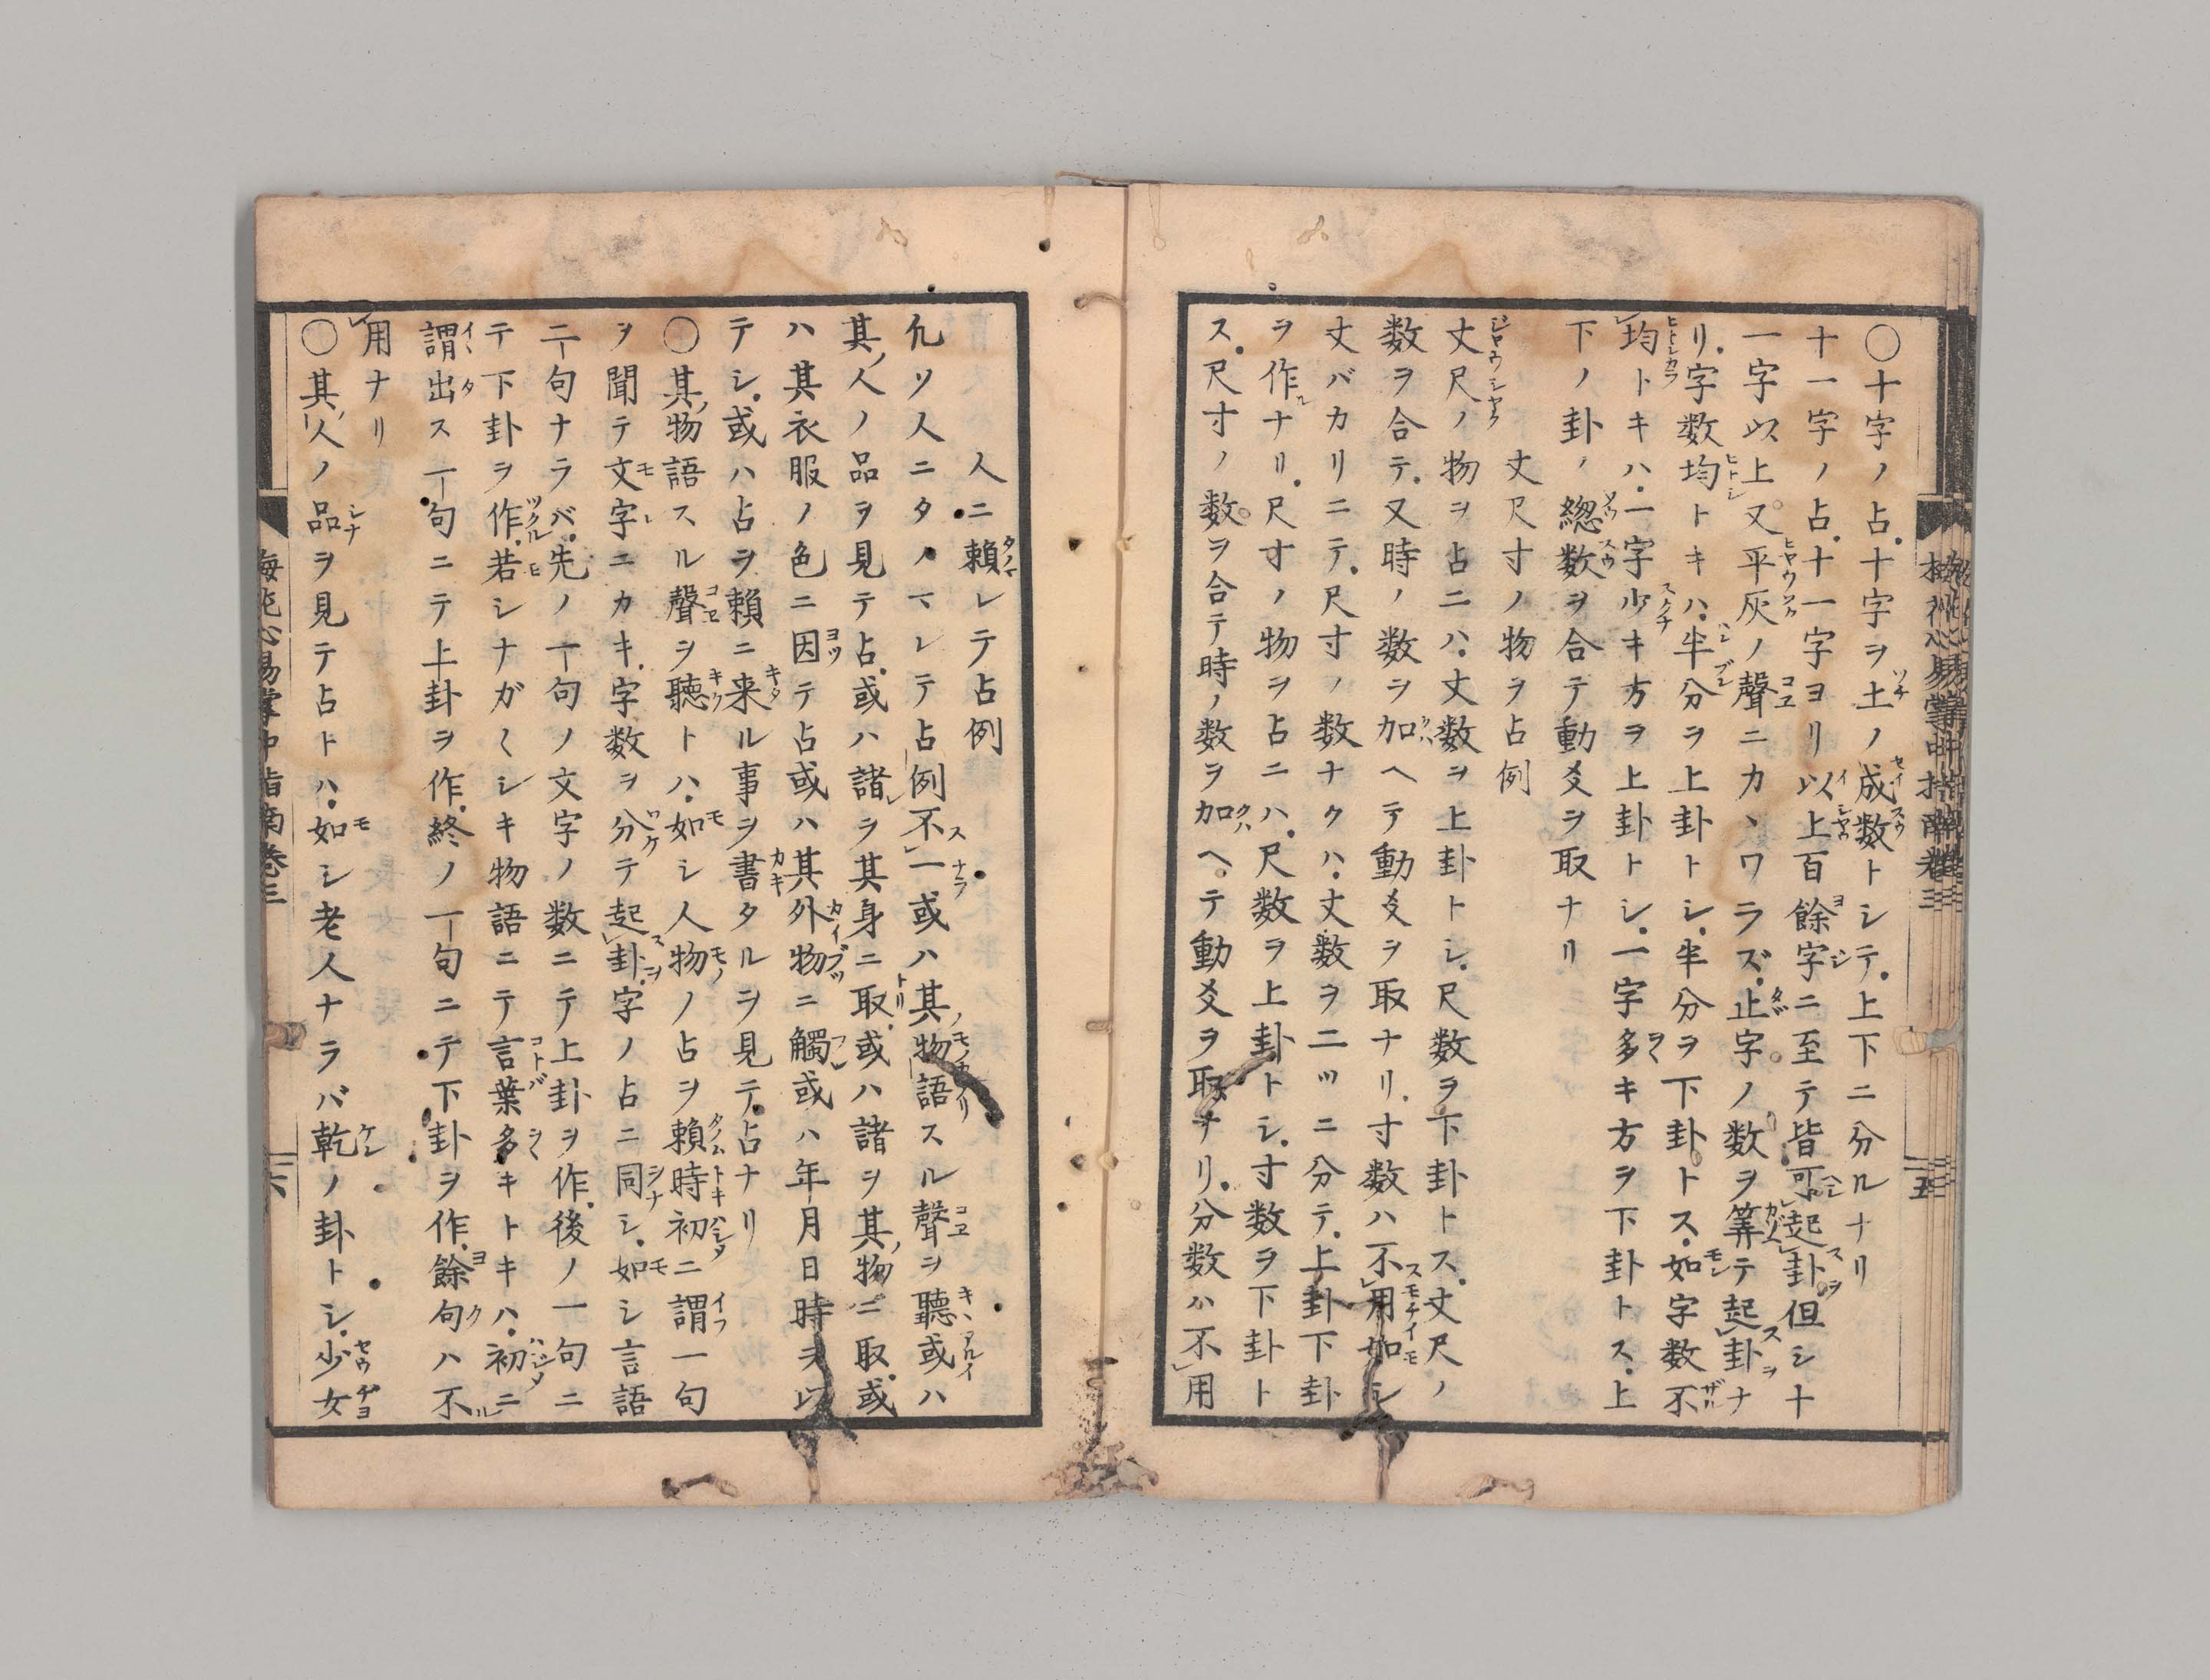 〇十字ノ占十字ヲ土ノ成数トシテ上下ニ分ルナリ
十一字ノ占十一字ヨリ以上百餘字ニ至テ皆可起卦但シ十
一字以上又平灰ノ聲ニカヽワラズ止字ノ数ヲ筭テ起卦ナ
リ字数均トキハ半分ヲ上卦トシ半分ヲ下卦トス如字数不
均トキハ一字少キ方ヲ上卦トシ一字多キ方ヲ下卦トス上
下ノ卦ノ総数ヲ合テ動爻ヲ取ナリ
丈尺寸ノ物ヲ占例
丈尺ノ物ヲ占ニハ丈数ヲ上卦トシ尺数ヲ下卦トス丈尺ノ
数ヲ合テ又時ノ数ヲ加ヘテ動爻ヲ取ナリ寸数ハ不用如シ
丈バカリニテ尺寸ノ数ナクハ丈数ヲ二ツニ分テ上卦下卦
ヲ作ナリ尺寸ノ物ヲ占ニハ尺数ヲ上卦トシ寸数ヲ下卦ト
ス尺寸ノ数ヲ合テ時ノ数ヲ加ヘテ動爻ヲ取ナリ分数ハ不用
人ニ頼レテ占例
凢ソ人ニタノマレテ占例不一或ハ其物語スル聲ヲ聽或ハ
其人ノ品ヲ見テ占或ハ諸ヲ其身ニ取或ハ諸ヲ其物ニ取或
ハ其衣服ノ色ニ因テ占或ハ其外物ニ觸或ハ年月日時ヲ以
テシ或ハ占ヲ頼ニ来ル事ヲ書タルヲ見テ占ナリ
〇其物語スル聲ヲ聽トハ如シ人物ノ占ヲ頼時初ニ謂一句
ヲ聞テ文字ニカキ字数ヲ分テ起卦字ノ占ニ同シ如シ言語
二句ナラバ先ノ一句ノ文字ノ数ニテ上卦ヲ作後ノ一句ニ
テ下卦ヲ作若シナガ〱シキ物語ニテ言葉多キトキハ初ニ
謂出ス一句ニテ上卦ヲ作終ノ一句ニテ下卦ヲ作餘句ハ不
用ナリ
〇其人ノ品ヲ見テ占トハ如シ老人ナラバ乾ノ卦トシ少女
梅花心易掌中指南卷三
六